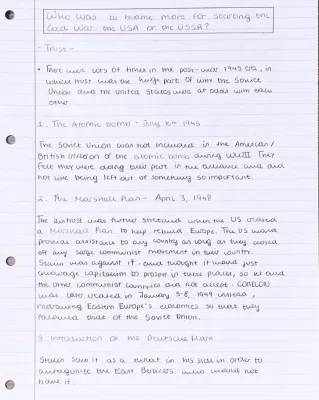 Who was to blame more for starting the
Cold War: the USA or the USSR?
- Trust -
• There were lots of times in the post-war 1945 era, in
which trust was the huge part of why the Soviet
Union and the United States were at odds with each
other.
1. The Atomic bomb - July 16th 1945
The Soviet Union was not included in the American/
British creation of the atomic bomb during WWII. They
felt they were doing their part in the alliance and did
not like being left out of something so important.
2. The Marshall Plan - April 3, 1948
The distrust was further stretched when the US created
a Marshall Plan to help rebuild Europe. The US would
promise assistance to any country as long as they closed
off any large communist movement in their country.
Stalin was against it and thought it would just
encourage capitalism to prosper in these places, so he and
the other communist countries did not accept. COMECON
was later created in January 5-8, 1949 instead,
redrawing Eastern Europe's economies so that they
followed that of the Soviet Union.
3. Introduction of the Deutsche Mark
Stalin saw it as a threat in his side in order to
antagonize the East Berliners who would not
have it.